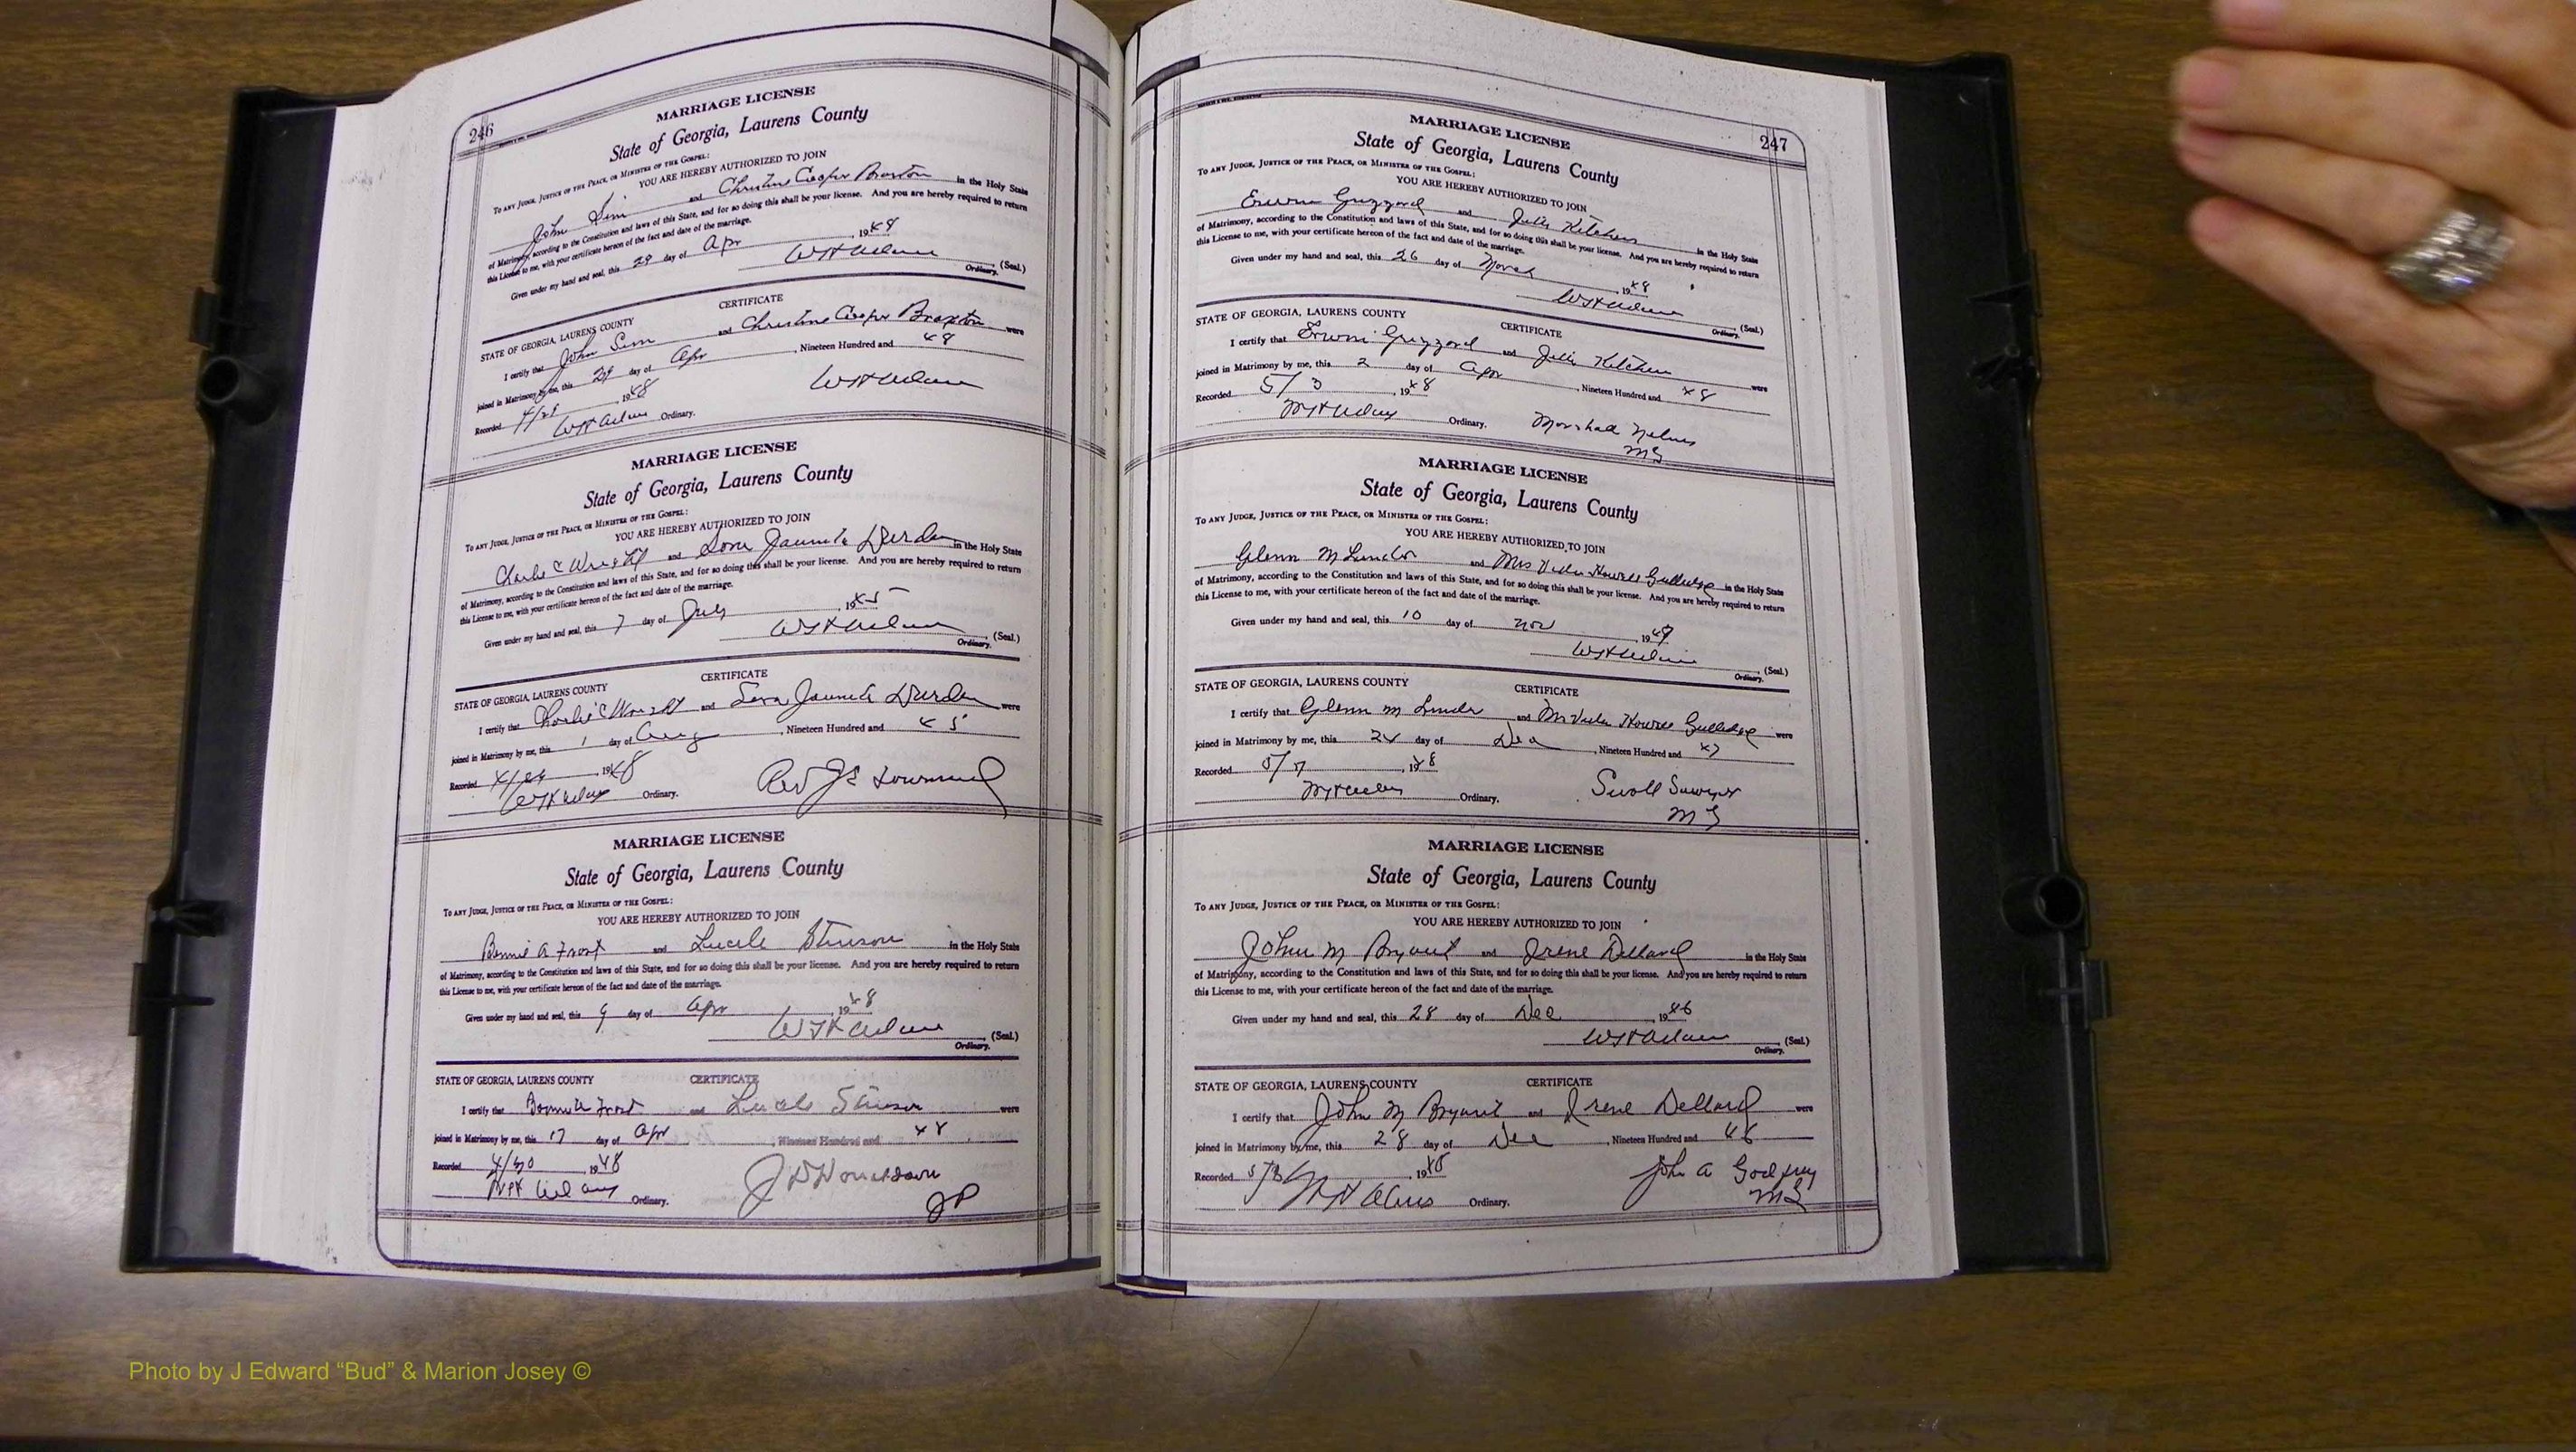 246
MARRIAGE LICENSE
State of Georgia, Laurens County
To any Judge, Justice of the Peace, or Minister of the Gospel:
YOU ARE HEREBY AUTHORIZED TO JOIN
John Sim and Christine Cooper Braxton in the Holy State
of Matrimony, according to the Constitution and laws of this State, and for so doing this shall be your license. And you are hereby required to return
this License to me, with your certificate hereon of the fact and date of the marriage.
Given under my hand and seal, this 29 day of Apr 1948
(Seal.)
Ordinary.
CERTIFICATE
STATE OF GEORGIA, LAURENS COUNTY
I certify that John Sim and Christine Cooper Braxton were
joined in Matrimony by me, this 29 day of Apr, Nineteen Hundred and 48
Recorded 4/29, 1948
Ordinary.
MARRIAGE LICENSE
State of Georgia, Laurens County
To any Judge, Justice of the Peace, or Minister of the Gospel:
YOU ARE HEREBY AUTHORIZED TO JOIN
Charlie C Wright and Durden in the Holy State
of Matrimony, according to the Constitution and laws of this State, and for so doing this shall be your license. And you are hereby required to return
this License to me, with your certificate hereon of the fact and date of the marriage.
Given under my hand and seal, this 7 day of July, 1945
(Seal.)
Ordinary.
CERTIFICATE
STATE OF GEORGIA, LAURENS COUNTY
I certify that Charlie C Wright and Durden were
joined in Matrimony by me, this 1 day of Aug, Nineteen Hundred and 45
Recorded 1948
Ordinary.
Rev
MARRIAGE LICENSE
State of Georgia, Laurens County
To any Judge, Justice of the Peace, or Minister of the Gospel:
YOU ARE HEREBY AUTHORIZED TO JOIN
A Frost and Lucile Stinson in the Holy State
of Matrimony, according to the Constitution and laws of this State, and for so doing this shall be your license. And you are hereby required to return
this License to me, with your certificate hereon of the fact and date of the marriage.
Given under my hand and seal, this 9 day of Apr 1948
(Seal.)
Ordinary.
STATE OF GEORGIA, LAURENS COUNTY CERTIFICATE
I certify that A Frost and Lucile Stinson were
joined in Matrimony by me, this 17 day of Apr, Nineteen Hundred and 48
Recorded 4/30, 1948
Ordinary.
J D Donaldson
JP
247
MARRIAGE LICENSE
State of Georgia, Laurens County
To any Judge, Justice of the Peace, or Minister of the Gospel:
YOU ARE HEREBY AUTHORIZED TO JOIN
Erwin Grizzard and Kitchens in the Holy State
of Matrimony, according to the Constitution and laws of this State, and for so doing this shall be your license. And you are hereby required to return
this License to me, with your certificate hereon of the fact and date of the marriage.
Given under my hand and seal, this 26 day of March, 1948
(Seal.)
Ordinary.
STATE OF GEORGIA, LAURENS COUNTY CERTIFICATE
I certify that Erwin Grizzard and Kitchens were
joined in Matrimony by me, this 2 day of Apr, Nineteen Hundred and 48
Recorded 5/3, 1948
Ordinary.
Marshall Nelms
MG
MARRIAGE LICENSE
State of Georgia, Laurens County
To any Judge, Justice of the Peace, or Minister of the Gospel:
YOU ARE HEREBY AUTHORIZED TO JOIN
Glenn M Linder and Mrs Howell Gulledge in the Holy State
of Matrimony, according to the Constitution and laws of this State, and for so doing this shall be your license. And you are hereby required to return
this License to me, with your certificate hereon of the fact and date of the marriage.
Given under my hand and seal, this 10 day of Nov, 19
(Seal.)
Ordinary.
STATE OF GEORGIA, LAURENS COUNTY CERTIFICATE
I certify that Glenn M Linder and Howell Gulledge were
joined in Matrimony by me, this 24 day of Dec, Nineteen Hundred and 47
Recorded 5/7, 1948
Ordinary.
Sawyer
MG
MARRIAGE LICENSE
State of Georgia, Laurens County
To any Judge, Justice of the Peace, or Minister of the Gospel:
YOU ARE HEREBY AUTHORIZED TO JOIN
John M Bryant and Irene Dellard in the Holy State
of Matrimony, according to the Constitution and laws of this State, and for so doing this shall be your license. And you are hereby required to return
this License to me, with your certificate hereon of the fact and date of the marriage.
Given under my hand and seal, this 28 day of Dec, 1946
(Seal.)
Ordinary.
STATE OF GEORGIA, LAURENS COUNTY CERTIFICATE
I certify that John M Bryant and Irene Dellard were
joined in Matrimony by me, this 28 day of Dec, Nineteen Hundred and 46
Recorded 1948
Ordinary.
John A Godfrey
MG
Photo by J Edward “Bud” & Marion Josey ©